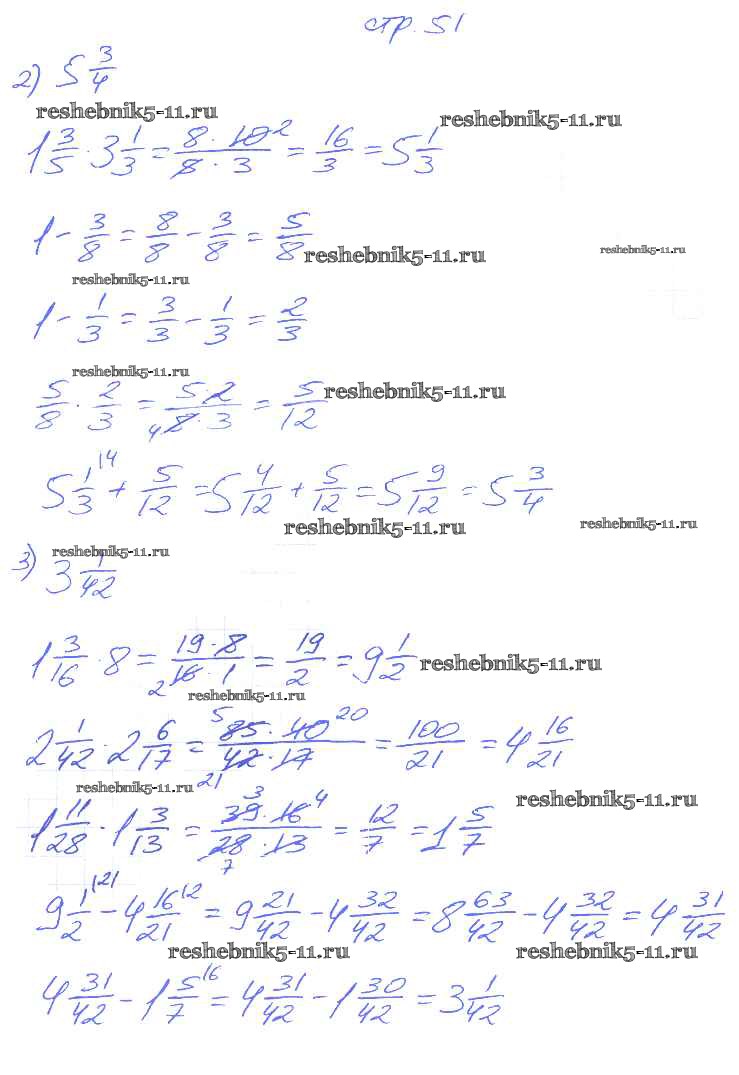 стр. 51
2) 5 3/4
reshebnik5-11.ru
reshebnik5-11.ru
1 3/5 · 3 1/3 = 8 · 10 2 / 5 · 3 = 16/3 = 5 1/3
1 - 3/8 = 8/8 - 3/8 = 5/8
reshebnik5-11.ru
reshebnik5-11.ru
reshebnik5-11.ru
1 - 1/3 = 3/3 - 1/3 = 2/3
reshebnik5-11.ru
5/8 · 2/3 = 5 · 2 / 4 8 · 3 = 5/12
reshebnik5-11.ru
5 1/3 |4 + 5/12 = 5 4/12 + 5/12 = 5 9/12 = 5 3/4
reshebnik5-11.ru
reshebnik5-11.ru
reshebnik5-11.ru
3) 3 1/42
1 3/16 · 8 = 19 · 8 / 2 16 · 1 = 19/2 = 9 1/2
reshebnik5-11.ru
reshebnik5-11.ru
2 1/42 · 2 6/17 = 5 85 · 40 20 / 42 21 · 17 = 100/21 = 4 16/21
reshebnik5-11.ru
reshebnik5-11.ru
1 11/28 · 1 3/13 = 3 39 · 16 4 / 28 7 · 13 = 12/7 = 1 5/7
9 1/2 |21 - 4 16/21 |2 = 9 21/42 - 4 32/42 = 8 63/42 - 4 32/42 = 4 31/42
reshebnik5-11.ru
reshebnik5-11.ru
4 31/42 - 1 5/7 |6 = 4 31/42 - 1 30/42 = 3 1/42